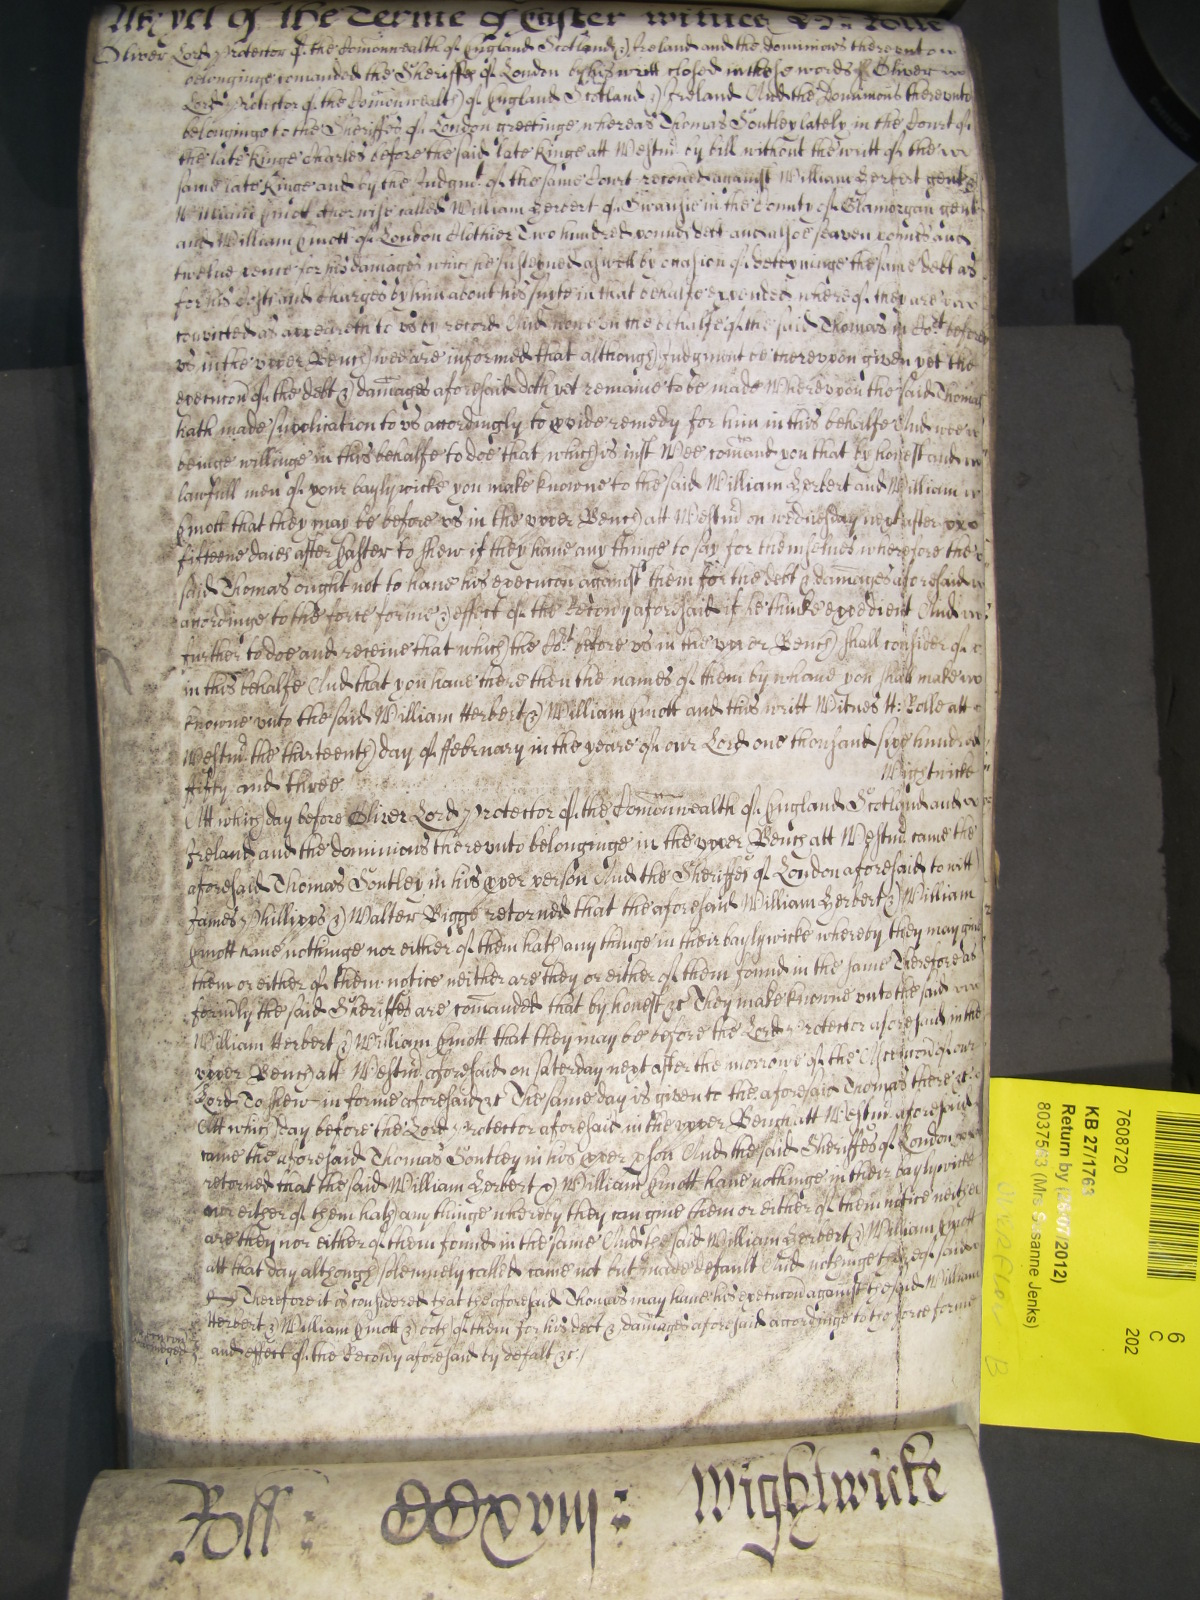 As yet of the Terme of Easter witnes H: Rolle
Oliver Lord Protector of the Comonwealth of England Scotland & Ireland and the dominions thereunto
belonginge comanded the Sheriffes of London by his writt closed in these words Oliver
Lord Protector of the Comonwealth of England Scotland & Ireland And the Dominions thereunto
belonginge to the Sheriffes of London greetinge whereas Thomas Soutley lately in the Court of
the late Kinge Charles before the said late Kinge att Westmr by bill without the writt of the
same late Kinge and by the Judgmt of the same Court recoved against William Herbert gent &
William Emott otherwise called William Herbert of Swansie in the County of Glamorgan gent
and William Emott of London Clothier Two hundred pounds debt and alsoe seaven pounds and
twelve pence for his damages which he susteyned aswell by occasion of deteyninge the same debt as
for his Costs and charges by him about his suyte in that behalfe expended whereof they are
convicted as appeareth to us by record And now on the behalfe of the said Thomas in Cort before
us in the upper Bench wee are informed that although Judgment be thereupon given yet the
execucon of the debt & damages aforesaid doth yet remaine to be made Whereupon the said Thomas
hath made supplication to us accordingly to pvide remedy for him in this behalfe And wee
beinge willinge in this behalfe to doe that which is just Wee comand you that by honest and
lawfull men of your baylywicke you make knowne to the said William Herbert and William
Emott that they may be before us in the upper Bench att Westmr on wednesday next after
fifteene daies after Easter to shew if they have any thinge to say for themselves wherefore the
said Thomas ought not to have his execucon against them for the debt & damages aforesaid
accordinge to the force forme & effect of the Recovy aforesaid if he thinke expedient And
further to doe and receive that which the Cort before us in the upper Bench shall consider of
in this behalfe And that you have there then the names of them by whome you shall make
knowne unto the said William Herbert & William Emott and this writt Witnes H: Rolle att
Westmr the thirteenth day of ffebruary in the yeare of our Lord one thousand six hundred
fifty and three
Wightwicke
Att which day before Oliver Lord Protector of the Comonwealth of England Scotland and
Ireland and the dominions thereunto belonginge in the upper Bench att Westmr came the
aforesaid Thomas Soutley in his pper person And the Sheriffes of London aforesaid to witt
James Phillipps & Walter Bigge retorned that the aforesaid William Herbert & William
Emott have nothinge nor either of them hath any thinge in their baylywicke whereby they may give
them or either of them notice neither are they or either of them found in the same Therefore as
formily the said Sheriffes are comanded that by honest &c They make knowne unto the said
William Herbert & William Emott that they may be before the Lord Protector aforesaid in the
upper Bench att Westmr aforesaid on saterday next after the morrowe of the Ascencon of our
Lord To shew in forme aforesaid &c The same day is given to the aforesaid Thomas there &c
Att which day before the Lord Protector aforesaid in the upper Bench att Westmr aforesaid
came the aforesaid Thomas Soutley in his pper pson And the said Sheriffes of London
retorned that the said William Herbert & William Emott have nothinge in their baylywicke
nor either of them hath any thinge whereby they can give them or either of them notice neither
are they nor either of them found in the same And the said William Herbert & William Emott
att that day although solemnely called came not but made default And nothinge
Therefore it is considered that the aforesaid Thomas may have his execucon against the said William
Herbert & William Emott & both of them for his debt & damages aforesaid accordinge to the force forme
and effect of the Recovy aforesaid by default &c:/
Roll: CCxviii: Wightwicke
7608720
KB 27/1763
Return by (28/07/2012)
8037563 (Mrs Susanne Jenks)
6
C
202